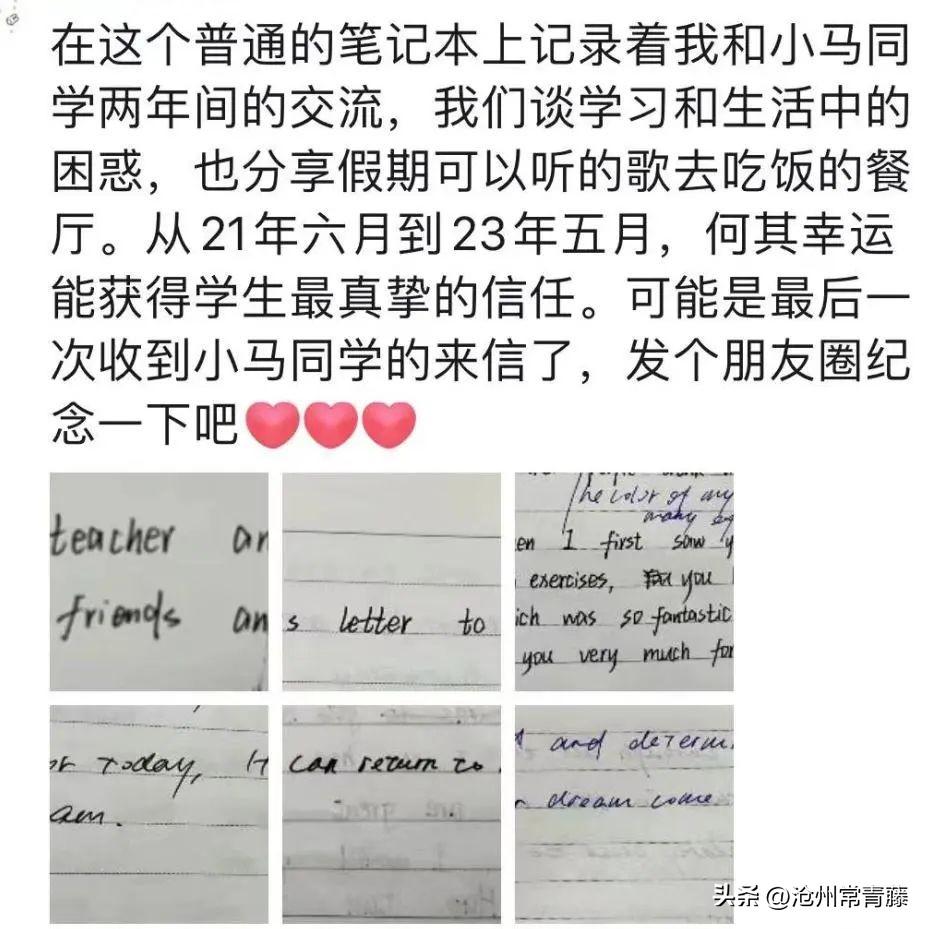 在这个普通的笔记本上记录着我和小马同
学两年间的交流，我们谈学习和生活中的
困惑，也分享假期可以听的歌去吃饭的餐
厅。从21年六月到23年五月，何其幸运
能获得学生最真挚的信任。可能是最后一
次收到小马同学的来信了，发个朋友圈纪
念一下吧
teacher
friends
s letter to
the color of my
many
en I first saw
exercises, you
ich was so fantastic
you very much for
today,
am.
can return to
and
dream come
头条 @沧州常青藤